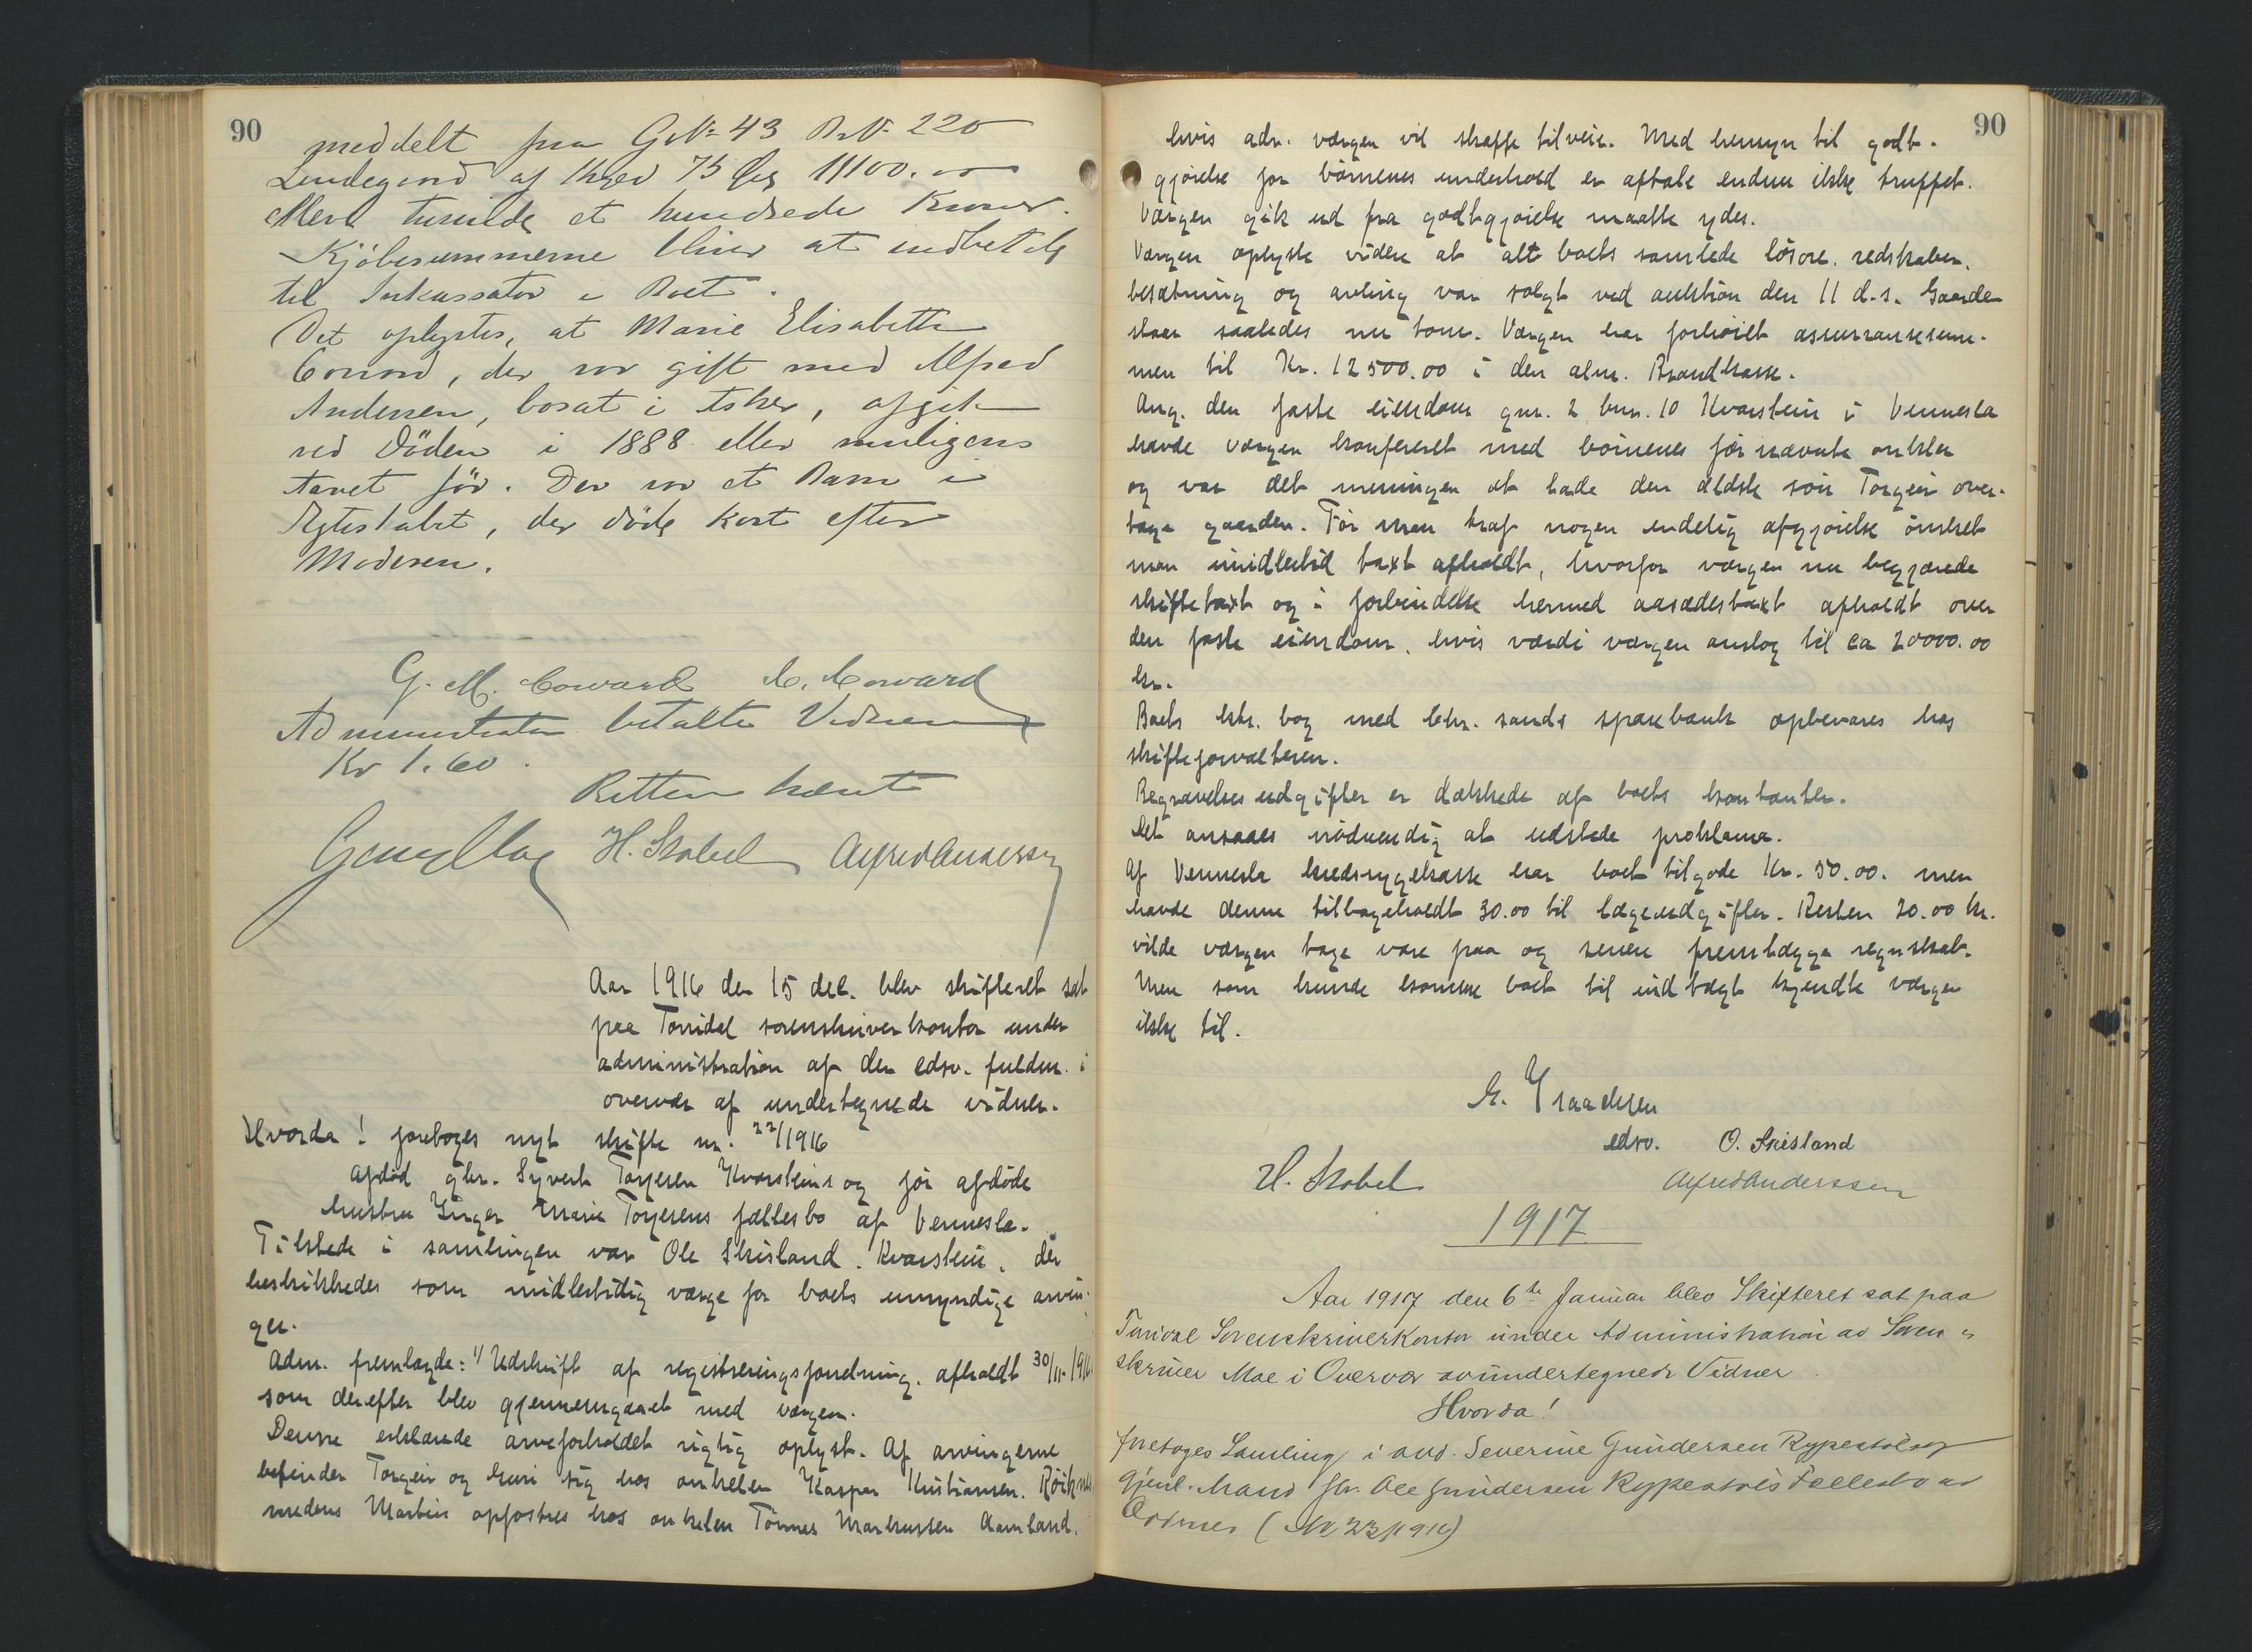 90
meddelt fra G.Nº 43 B.N. 220
Lindegaard af Skyld 75 Øre 11100.00
elleve tusinde et hundrede Kroner.
Kjøbesummerne bliver at indbetale
til Inkassator i Boet.
Det oplystes, at Marie Elisabeth
Coward, der var gift med Alfred
Andersen, bosat i Asker, afgik
ved Døden i 1888 eller muligens
Aaret før. Der var et Barn i
Ægteskabet, der døde kort efter
Moderen.
G. M. Coward C. Coward
Administrator betalte Vidnerne
Kr 1.60.
Retten hævet
H. Stabel Alfred Anderssen
Aar 1916 den 15 dec. blev skifteret sat
paa Torridal sorenskriverkontor under
administration af den edsv. fuldm. i
overvær af undertegnede vidner.
Hvorda! foretoges nyt skifte nr. 22/1916
afdød gbr. Syvert Torjesen Kvarsteins og før afdøde
hustru Inger Marie Torjesens fællesbo af Vennesla.
Tilstede i samlingen var Ole Skisland. Kvarstein, der
beskikkedes som midlertidig værge for boets umyndige arvin-
ger.
Adm. fremlagde: 1) Udskrift af registreringsforretning, afholdt 30/11. 1916
som derefter blev gjennemgaaet med værgen.
Denne erklærede arveforholdet rigtig oplyst. Af arvingerne
befinder Torgeir og Guri sig hos onkelen Kaspar Kristiansen.
medens Martin opfostres hos onkelen Tønnes Markussen Aamland.
90
hvis adr. værgen vil skaffe tilveie. Med hensyn til godt-
gjørelse for børnenes underhold er aftale endnu ikke truffet.
Værgen gik ud fra godtgjørelse maatte ydes.
Værgen oplyste videre at alt boets samlede løsøre. redskaber.
besætning og avling var solgt ved auktion den 11 d.s. Gaarden
staar saaledes nu tom. Værgen har forhøiet assuransesum-
men til Kr. 12500.00 i den alm. Brandkasse.
Ang. den faste eiendom gnr. 2 bnr. 10 Kvarstein i Vennesla
havde værgen konfereret med børnenes før nævnte onkler
og var det meningen at lade den ældste søn Torgeir over-
tage gaarden. Før man traf nogen endelig afgjørelse ønsket
man imidlertid taxt afholdt, hvorfor værgen nu begjærede
skiftetaxt og i forbindelse hermed aasædestaxt afholdt over
den faste eiendom. hvis værdi værgen anslog til ca 20000.00
kr.
Boets ktr. bog med Chr. sands sparebank opbevares hos
skifteforvalteren.
Begravelsesudgifter er dækkede af boets kontanter.
Det ansaaes nødvendig at udstede proklama.
Af Vennesla kredssygekasse har boet tilgode Kr. 50.00. men
havde denne tilbageholdt 30.00 til lægeudgifter. Resten 20.00 kr.
vilde værgen tage vare paa og senere fremlægge regnskab.
Mer som kunde komme boet til indtægt kjendte værgen
ikke til.
G. Isaachsen
edsv. O. Skisland
H. Stabel Alfred Anderssen
1917
Aar 1917 den 6te Januar blev Skifteret sat paa
Torridal Sorenskriverkontor under Administration av Soren-
skriver Moe i Overvær av undertegnede Vidner.
Hvorda!
foretoges Samling i avd. Severine Gundersen Rypestøls og
gjenl. Mand Gbr. Ole Gundersen Rypestøls Fællesbo av
(Nr. 23/1916)